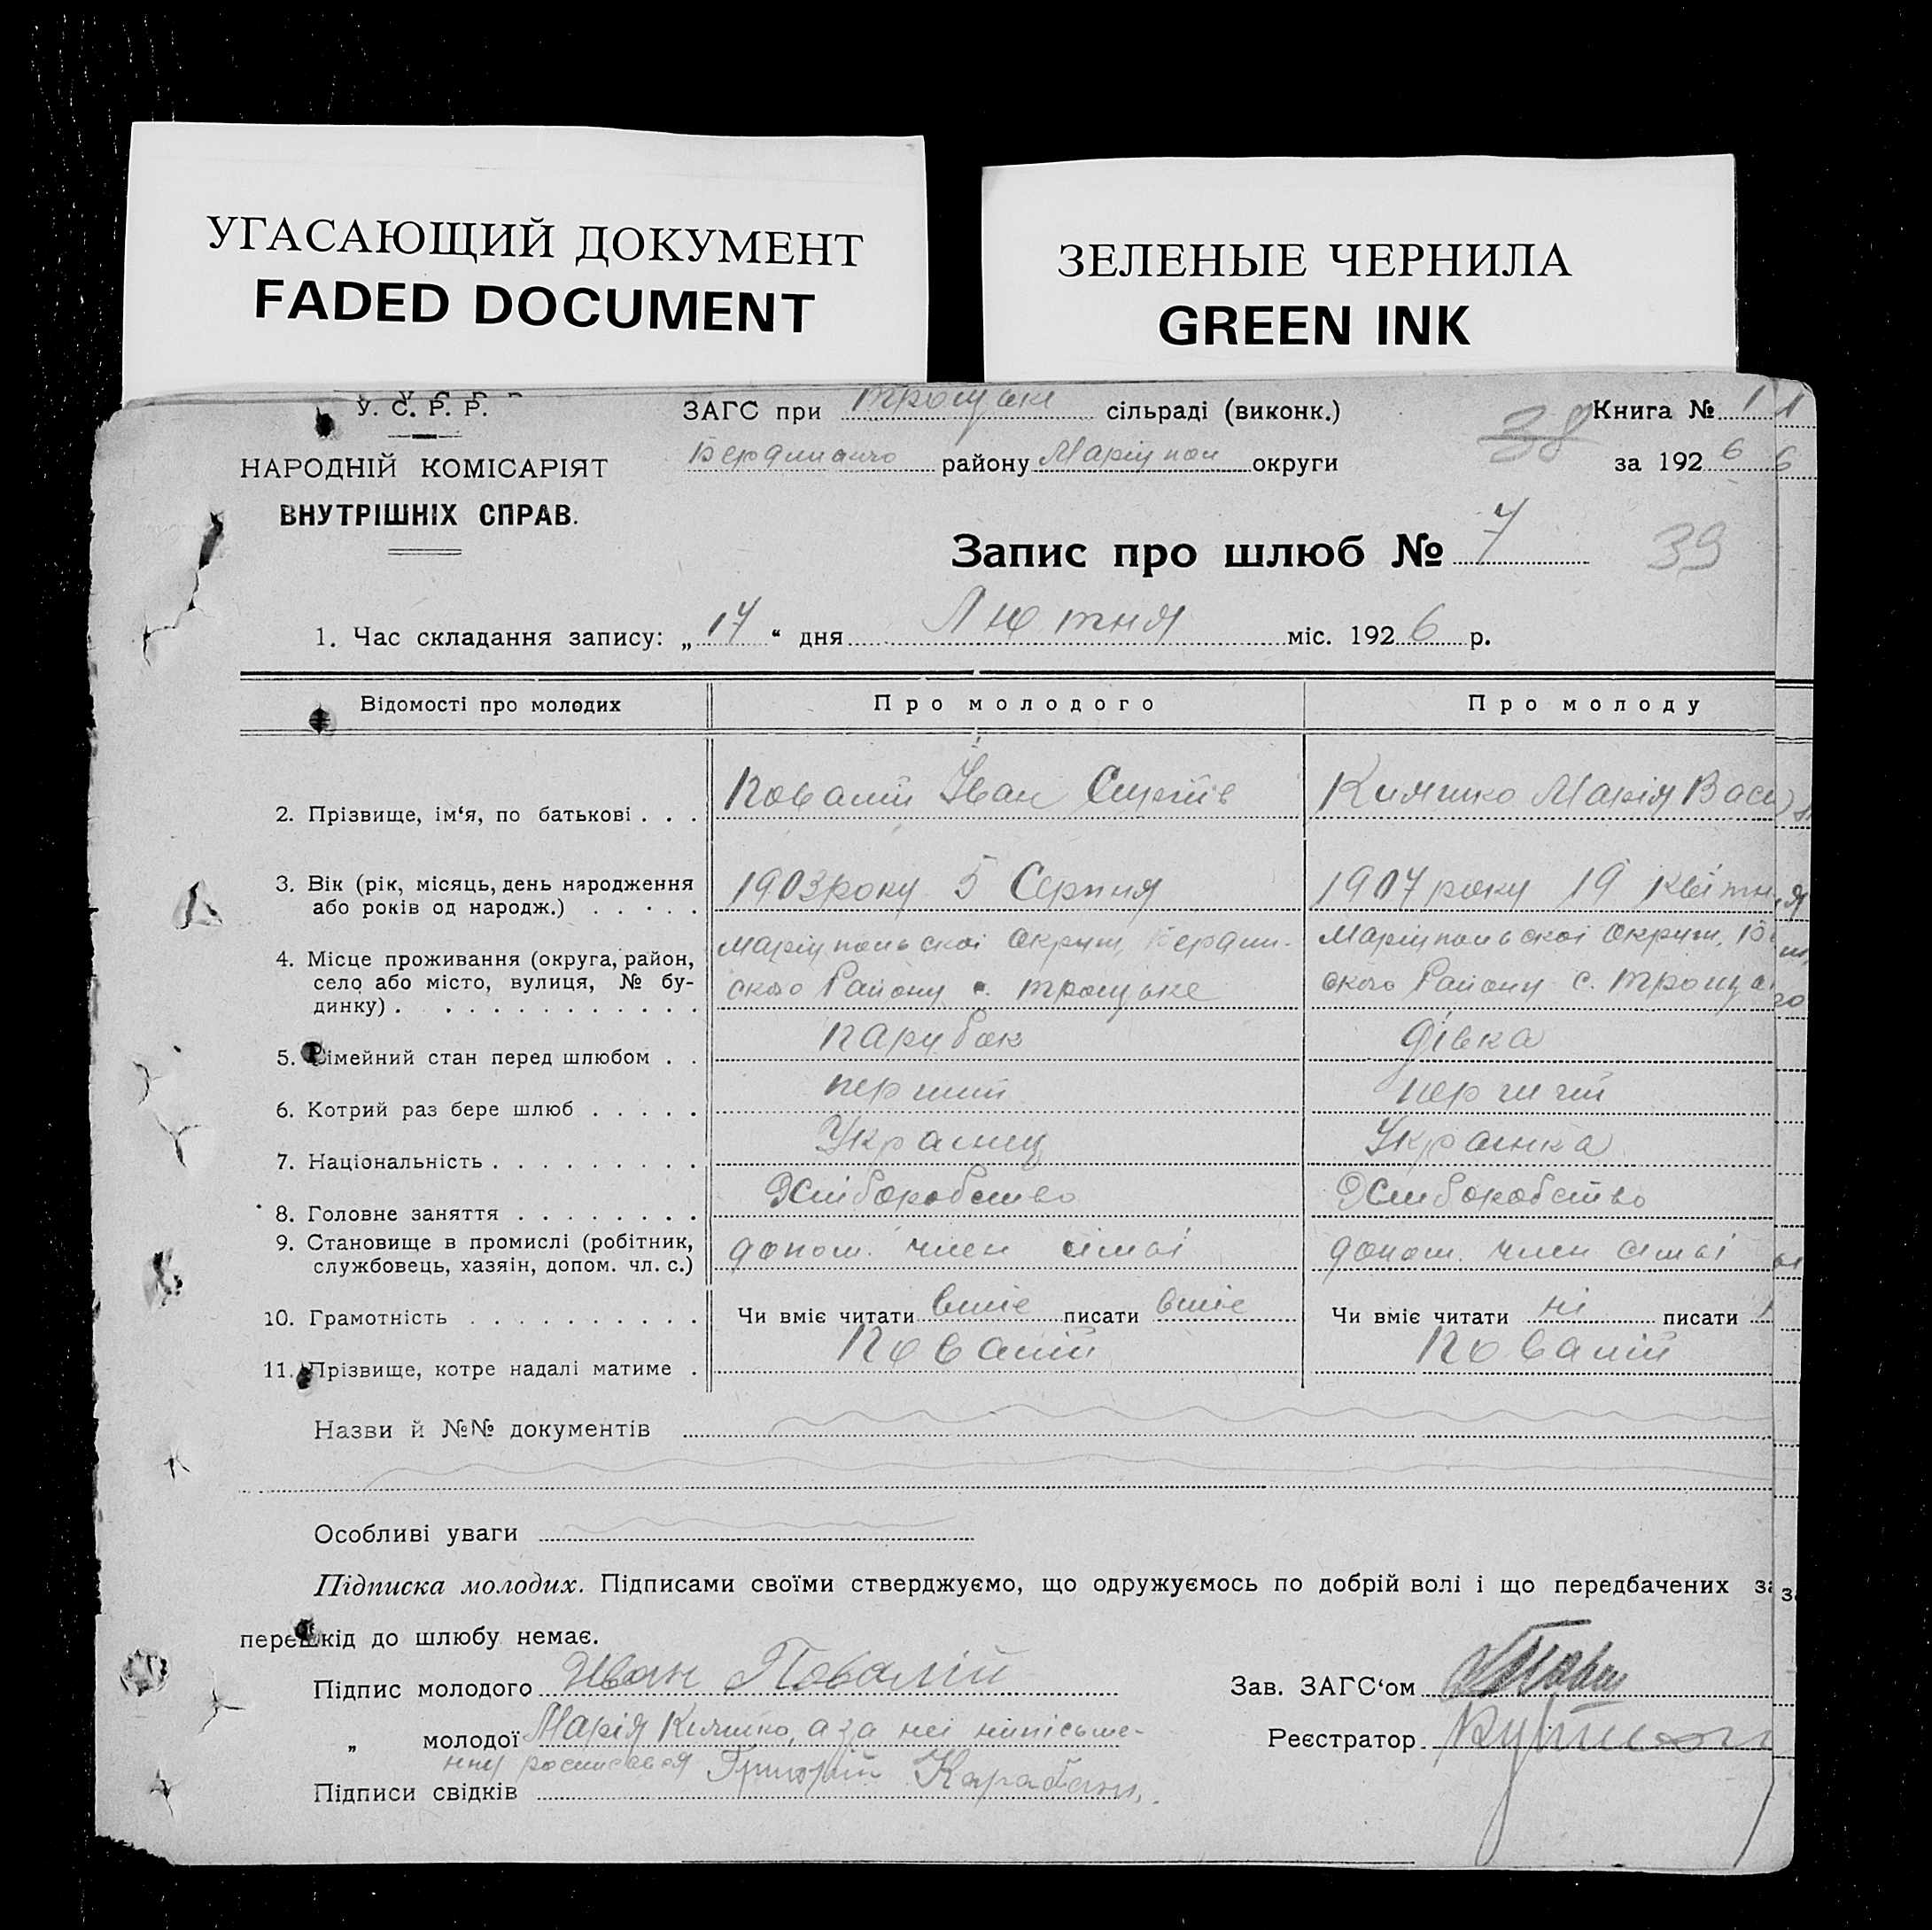 УГАСАЮЩИЙ ДОКУМЕНТ
FADED DOCUMENT
ЗЕЛЕНЫЕ ЧЕРНИЛА
GREEN INK
У. С. Р. Р.
НАРОДНІЙ КОМІСАРІЯТ
ВНУТРІШНІХ СПРАВ.
ЗАГС при сільраді (виконк.)
району Маріупол округи
Книга № 1
за 1926
38
Запис про шлюб № 7
39
1. Час складання запису: „17“ дня Лютня міс. 1926 р.
Відомості про молодих Про молодого Про молоду
2. Прізвище, ім‘я, по батькові . . . Повалій Іван Марія Вас
3. Вік (рік, місяць, день народження
або років од народж.) . . . . . 1903 року 5 Серпня 1907 року 19 квітня
4. Місце проживання (округа, район,
село або місто, вулиця, № бу-
динку) . . . . . . . . . . . . .
Маріупольскоі Округи,
ского Району с. троцьке
Маріупольскоі Округи,
ского Району с.
5. Сімейний стан перед шлюбом . . парубок дівка
6. Котрий раз бере шлюб . . . . . перший перший
7. Національність . . . . . . . . . Украинц Украинка
8. Головне заняття . . . . . . . . Хліборобство Хліборобство
9. Становище в промислі (робітник,
службовець, хазяін, допом. чл. с.) допом. член сімьі допом. член сімьі
10. Грамотність . . . . . . . . . . Чи вміє читати вміє писати вміє Чи вміє читати ні писати
11. Прізвище, котре надалі матиме . Повалій Повалій
Назви й №№ документів
Особливі уваги
Підписка молодих. Підписами своїми стверджуємо, що одружуємось по добрій волі і що передбачених за
перешкід до шлюбу немає.
Підпис молодого Иван Повалій
Зав. ЗАГС‘ом
„ молодої Марія а за неі ниписьме-
нну росписався Григорій Карабань
Реєстратор
Підписи свідків